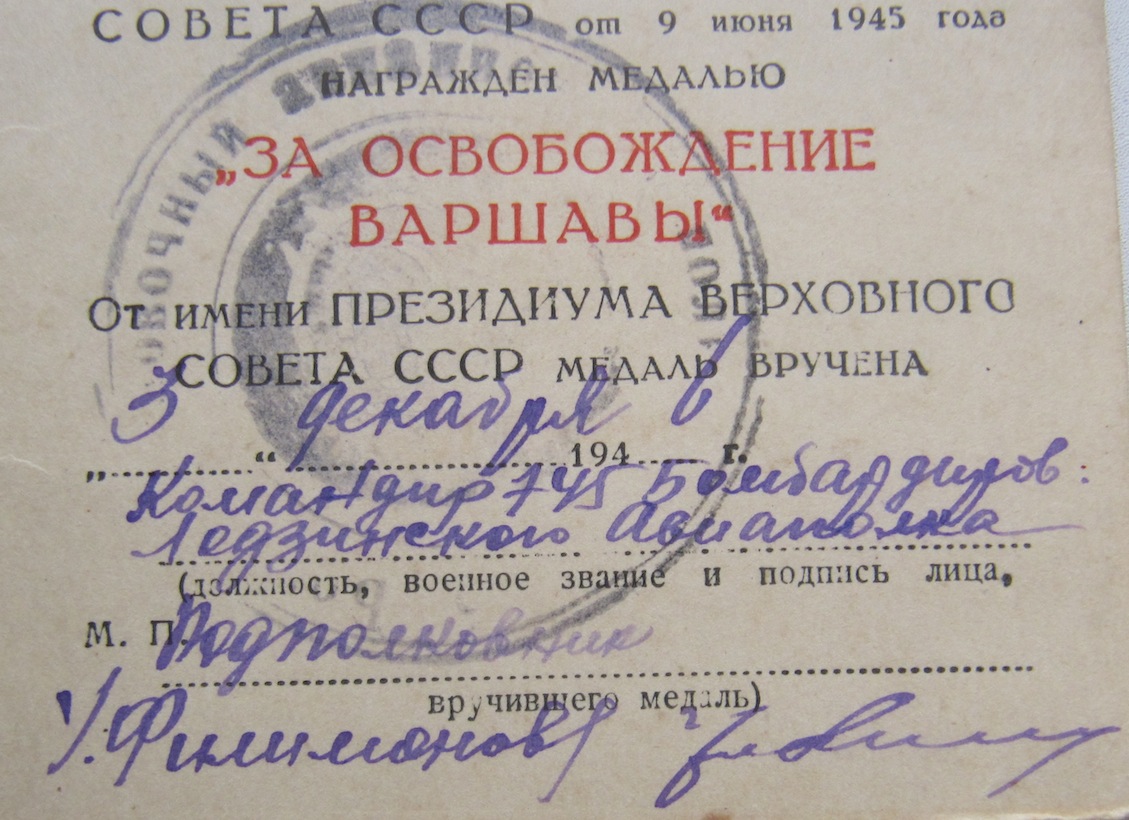 СОВЕТА СССР от 9 июня 1945 года
НАГРАЖДЕН МЕДАЛЬЮ
„ЗА ОСВОБОЖДЕНИЕ
ВАРШАВЫ“
От имени ПРЕЗИДИУМА ВЕРХОВНОГО
СОВЕТА СССР МЕДАЛЬ ВРУЧЕНА
„3“ декабря 1946 г.
Командир 745 Бомбардиров.
Лодзинского Авиаполка
(должность, военное звание и подпись лица,
М. П. Подполковник
вручившего медаль)
/Филимонов/